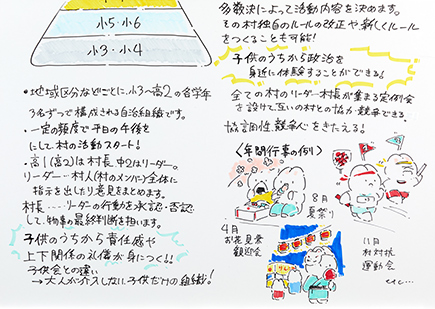 小5・小6
小3・小4
・地域区分などごとに、小3〜高2の各学年
3名ずつで構成される自治組織です。
・一定の頻度で平日の午後を
にして村の活動スタート!
・高1(高2)は村長、中2はリーダー。
リーダー…村人(村のメンバー)全体に
指示を出したり意見をまとめます。
村長……リーダーの行動を承認・否認
して、物事の最終判断を担います。
子供のうちから責任感や
上下関係の礼儀が身につく!!
子供会との違い
→大人が介入しない、子供だけの組織!
多数決によって活動内容を決めます。
その村独自のルールの改正や新しくルール
をつくることも可能!
子供のうちから政治を
身近に体験することができる!
全ての村のリーダー・村長が集まる定例会
を設けて、互いの村との協力・競争できる
協調性、競争心をきたえる!
〈年間行事の例〉
8月
夏祭り
4月
お花見兼
歓迎会
11月
村対抗
運動会
etc…